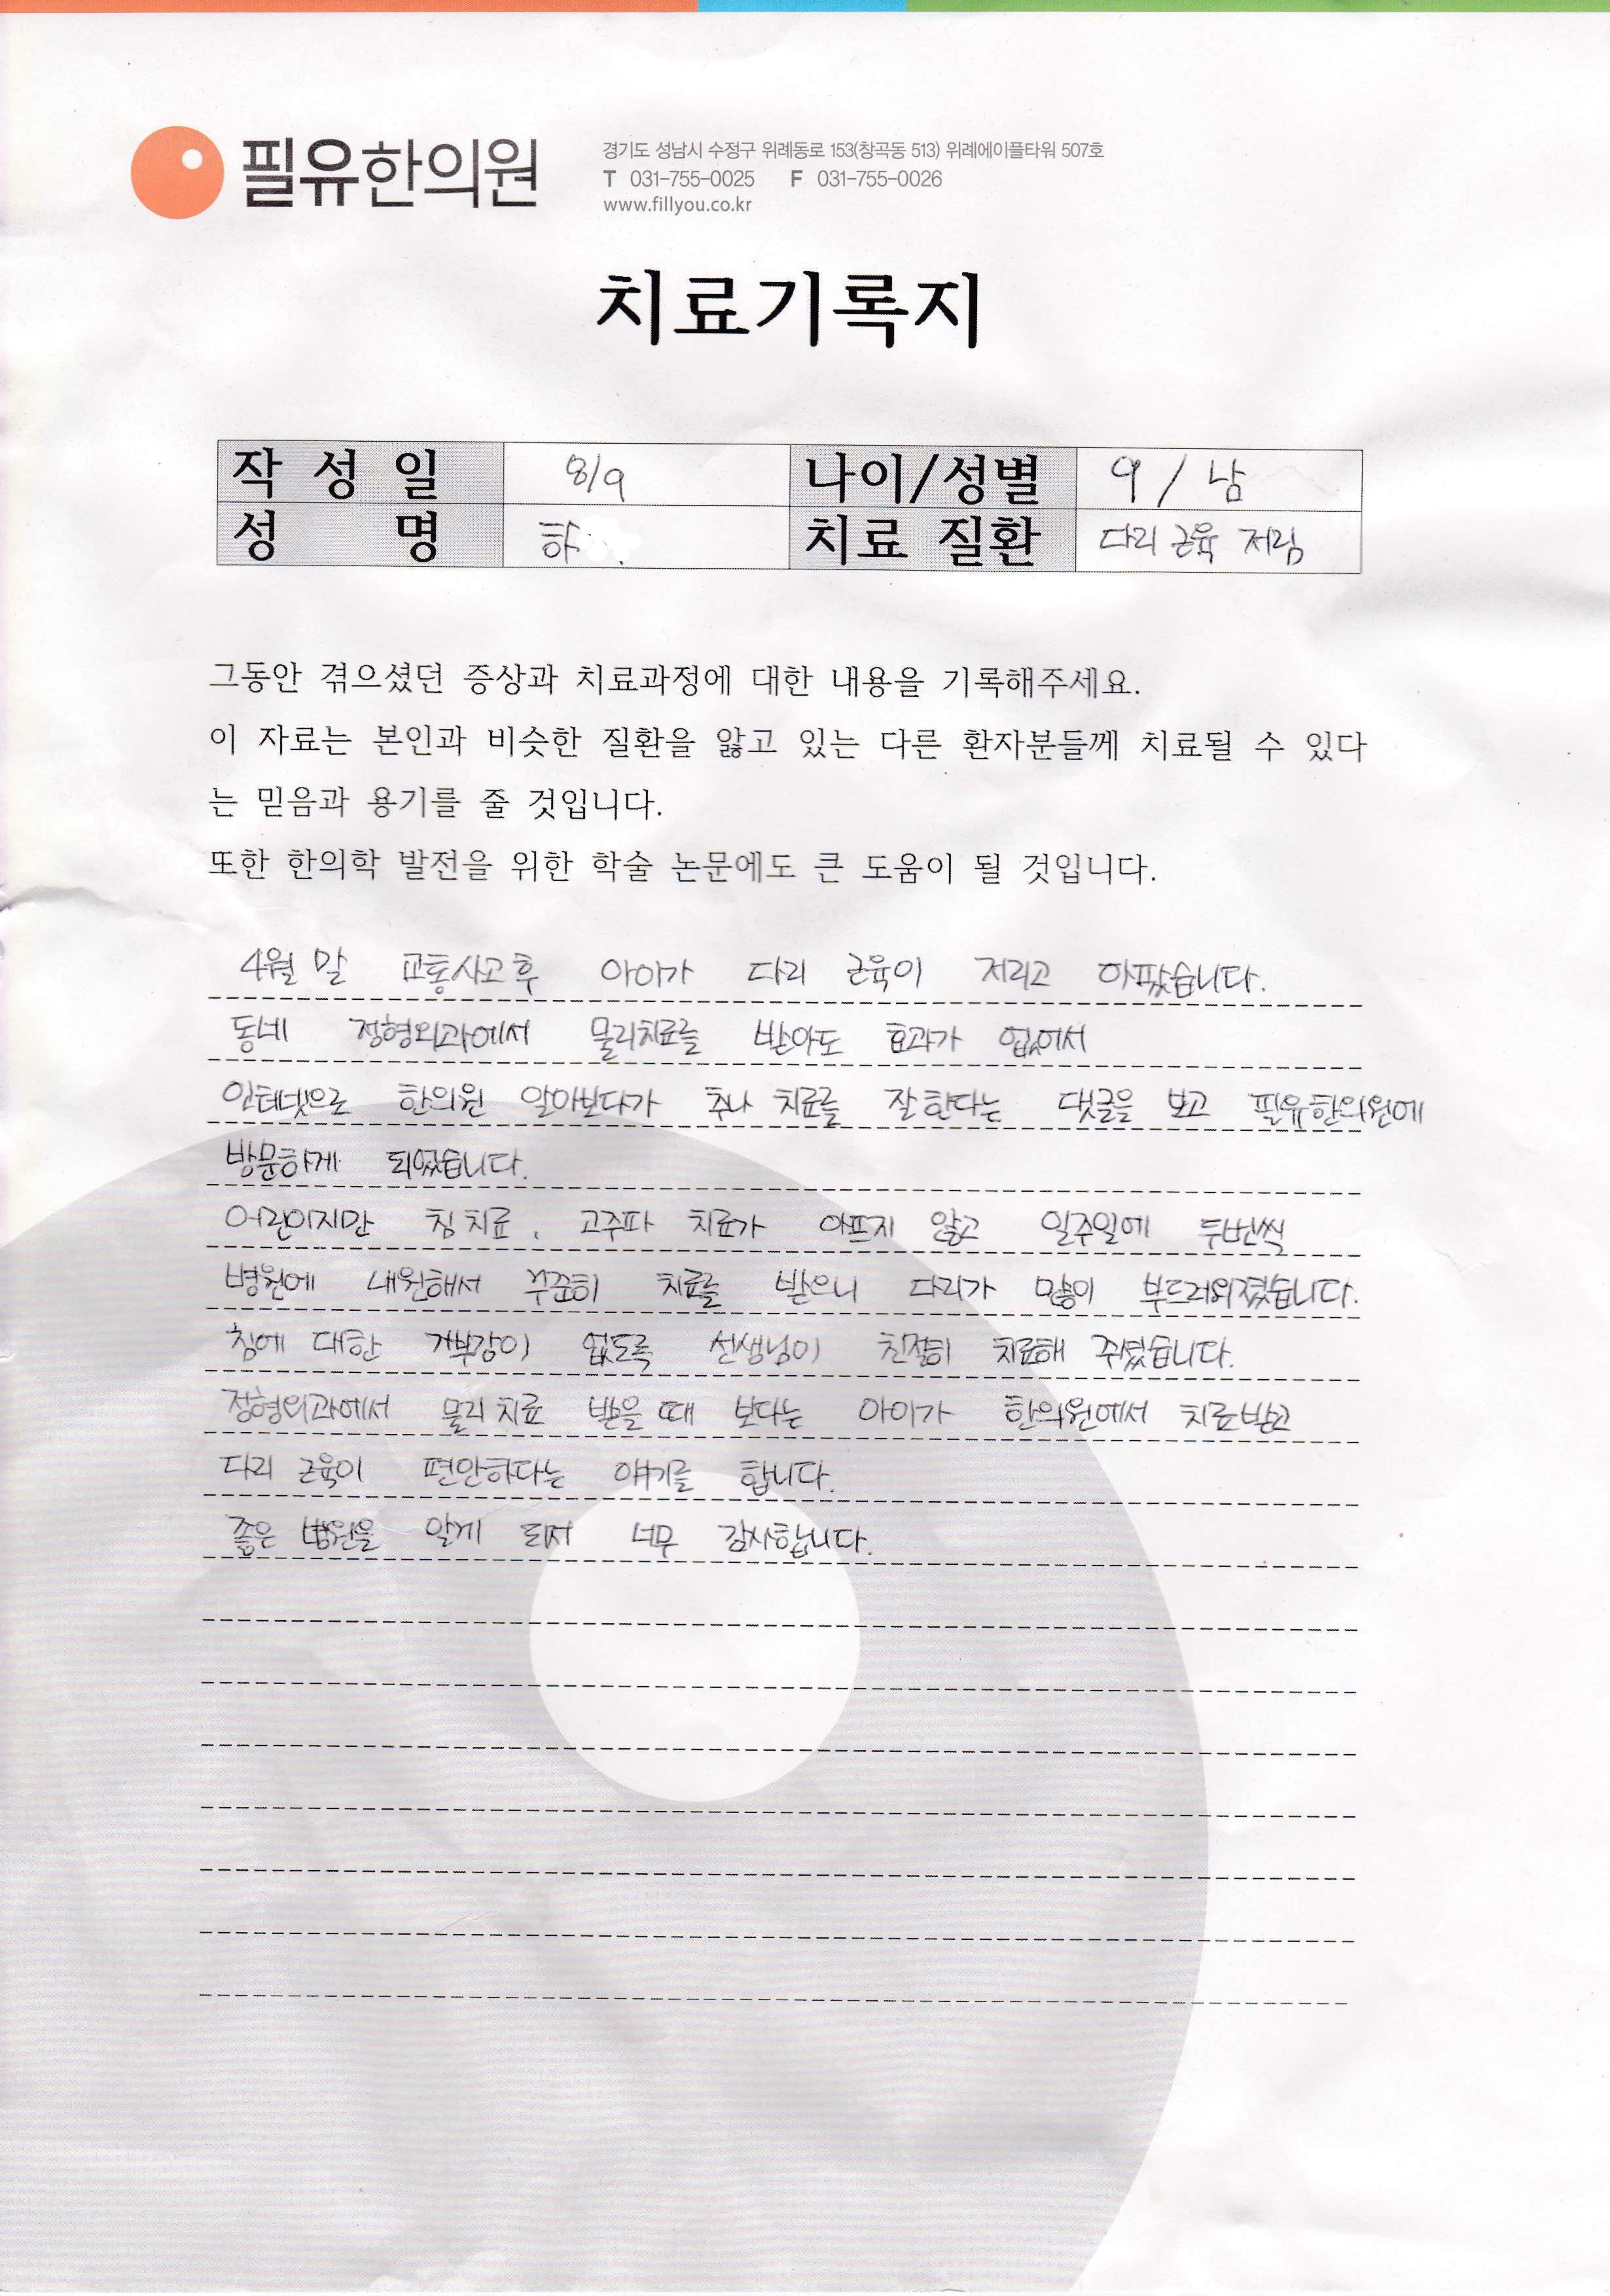 필유한의원
경기도 성남시 수정구 위례동로 153(창곡동 513) 위례에이플타워 507호
T 031-755-0025 F 031-755-0026
www.fillyou.co.kr
치료기록지
작 성 일 8/9 나이/성별 9 / 남
성 명 하 치료 질환 다리 근육 저림
그동안 겪으셨던 증상과 치료과정에 대한 내용을 기록해주세요.
이 자료는 본인과 비슷한 질환을 앓고 있는 다른 환자분들께 치료될 수 있다
는 믿음과 용기를 줄 것입니다.
또한 한의학 발전을 위한 학술 논문에도 큰 도움이 될 것입니다.
4월 말 교통사고 후 아이가 다리 근육이 저리고 아팠습니다.
동네 정형외과에서 물리치료를 받아도 효과가 없어서
인터넷으로 한의원 알아보다가 추나 치료를 잘 한다는 댓글을 보고 필유한의원에
방문하게 되었습니다.
어린이지만 침 치료, 고주파 치료가 아프지 않고 일주일에 두번씩
병원에 내원해서 꾸준히 치료를 받으니 다리가 많이 부드러워졌습니다.
침에 대한 거부감이 없도록 선생님이 친절히 치료해 주셨습니다.
정형외과에서 물리 치료 받을 때 보다는 아이가 한의원에서 치료받고
다리 근육이 편안하다는 얘기를 합니다.
좋은 병원을 알게 되서 너무 감사합니다.